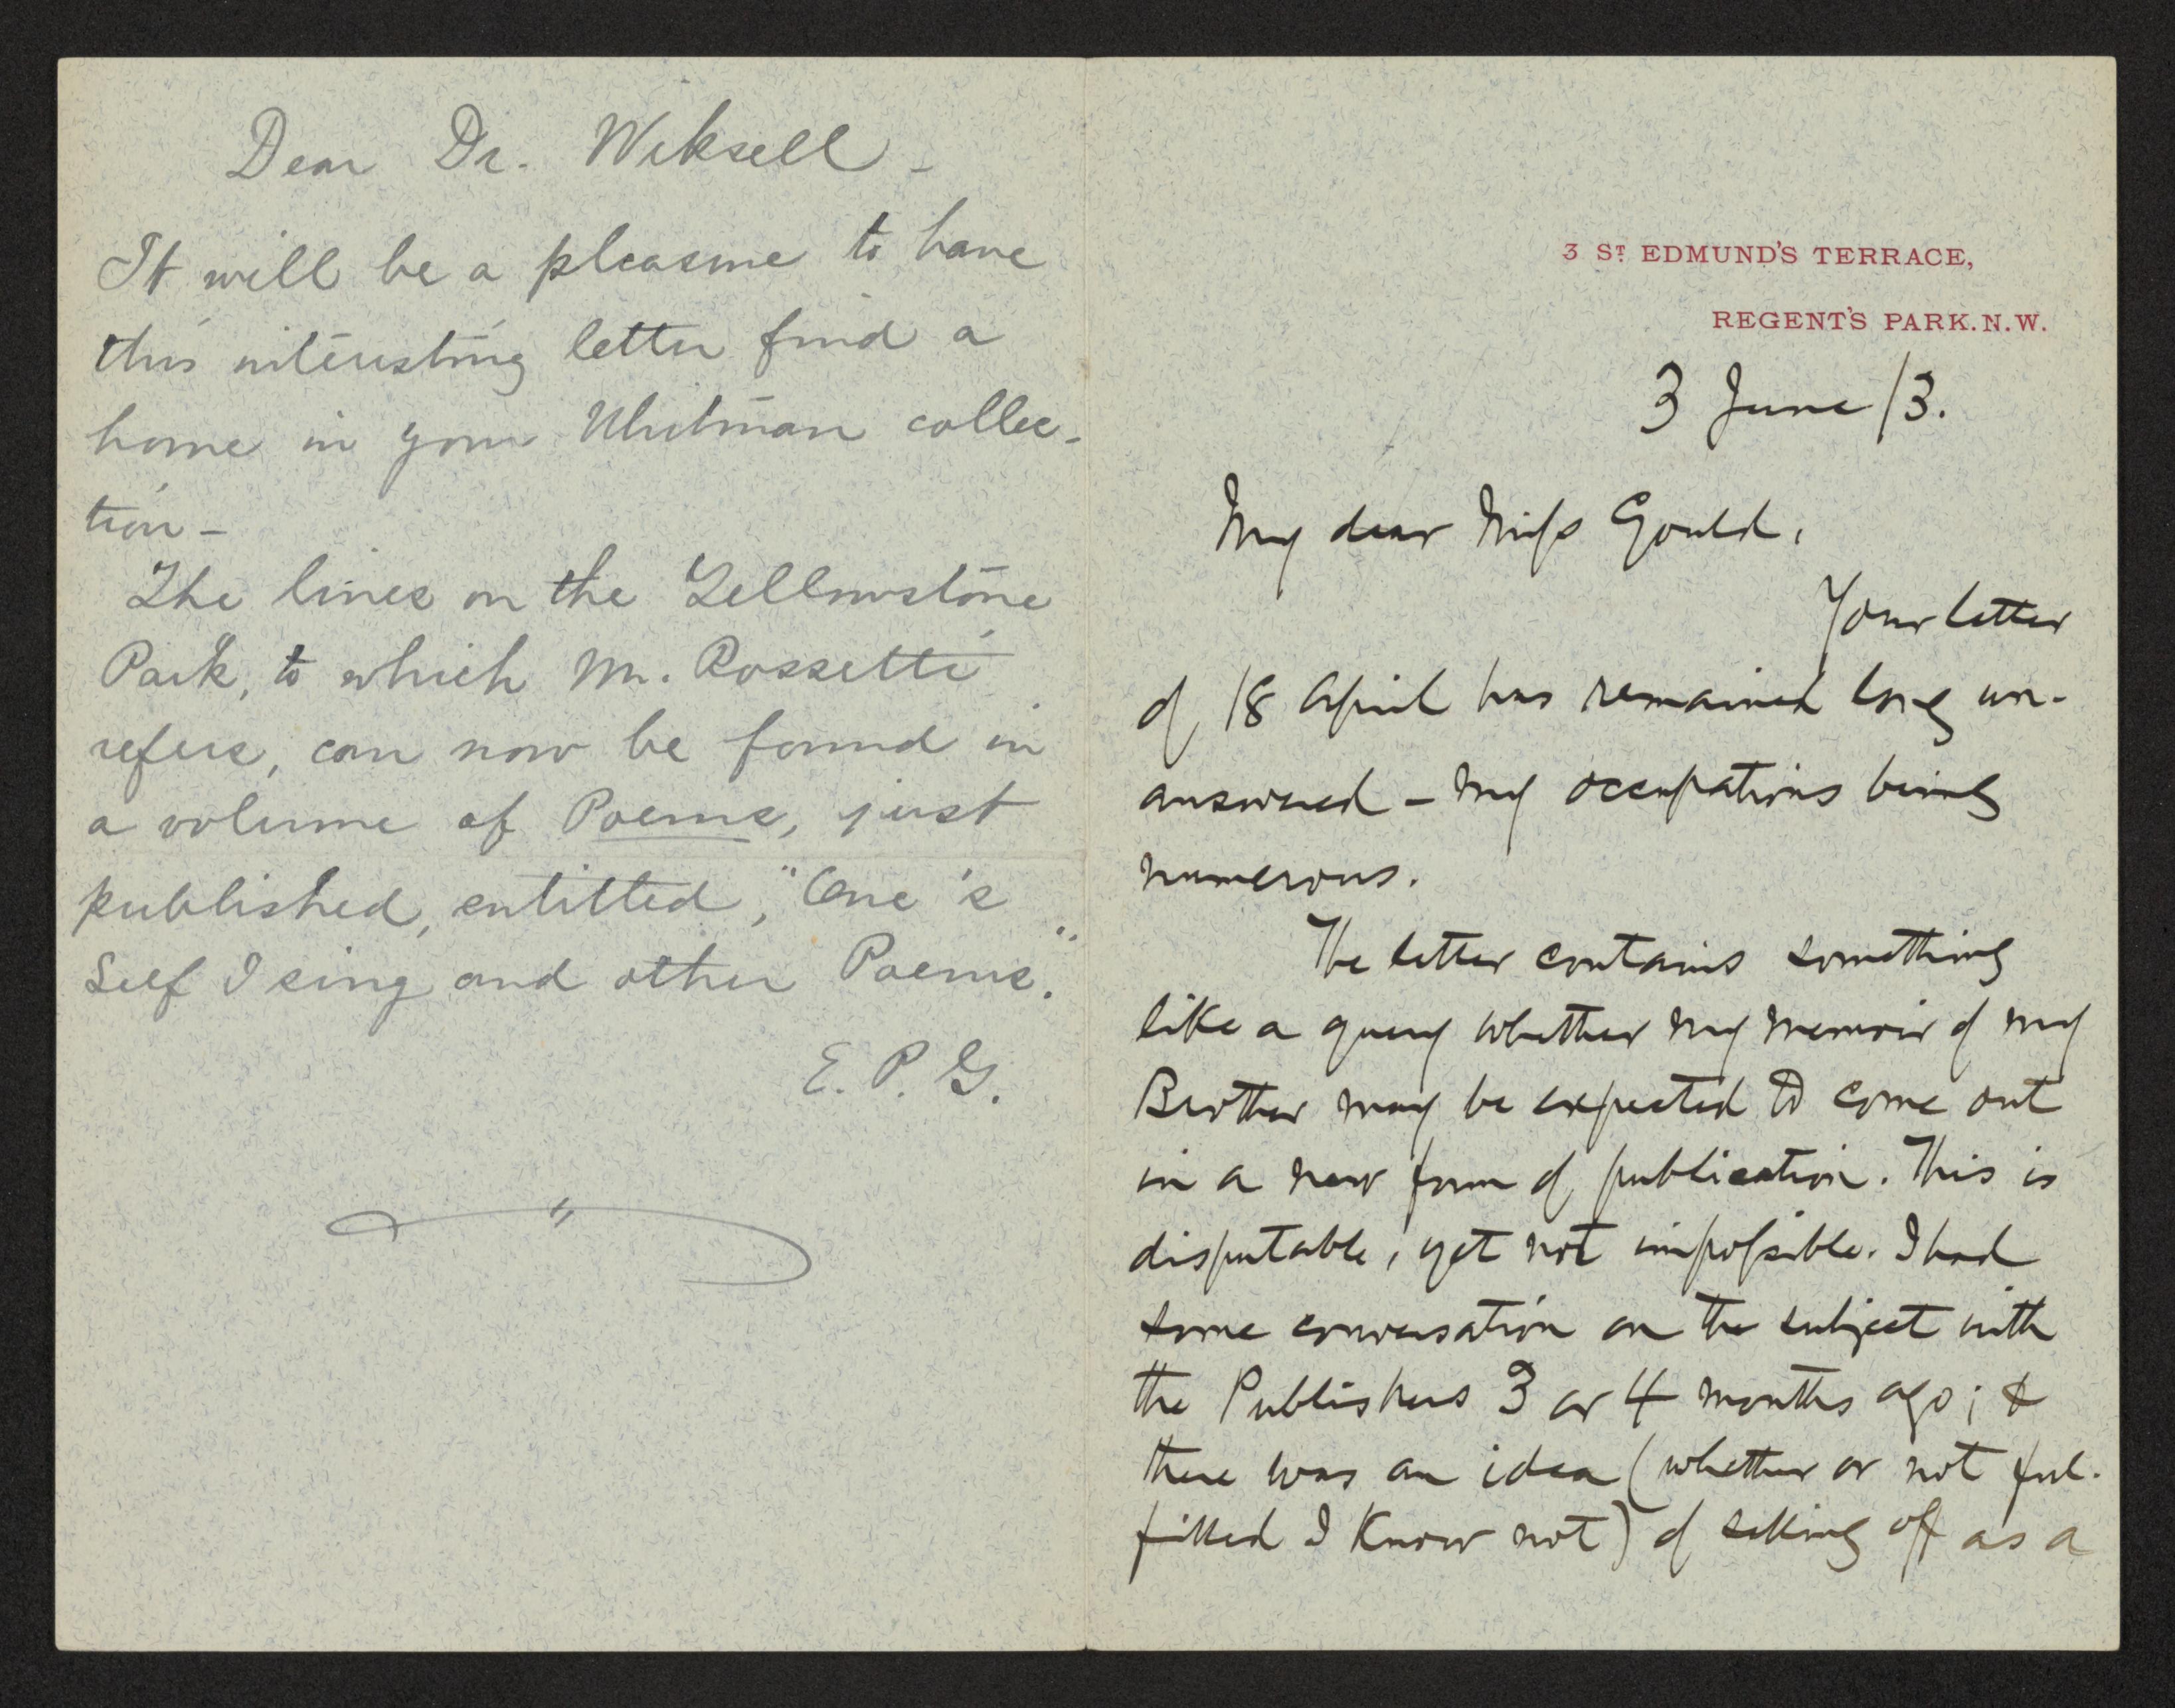 Dear Dr. Wiksell -
It will be a pleasure to have
this interesting letter find a
home in your Whitman collec-
tion -
The lines on the Yellowstone
Park, to which Mr. Rossetti
refers, can now be found in
a volume of Poems, just
published, entitled, "One's
Self I sing and other Poems."
E. P. G.
3 ST. EDMUND'S TERRACE,
REGENT'S PARK. N.W.
3 June /3.
My dear Miss Gould,
Your letter
of 18 April has remained long un-
answered - my occupations being
numerous.
The letter contains something
like a query whether my memoir of my
Brother may be expected to come out
in a new form of publication. This is
disputable, yet not impossible. I had
some conversation on the subject with
the Publishers 3 or 4 months ago; &
there was an idea (whether or not ful-
filled I know not) of selling off as a